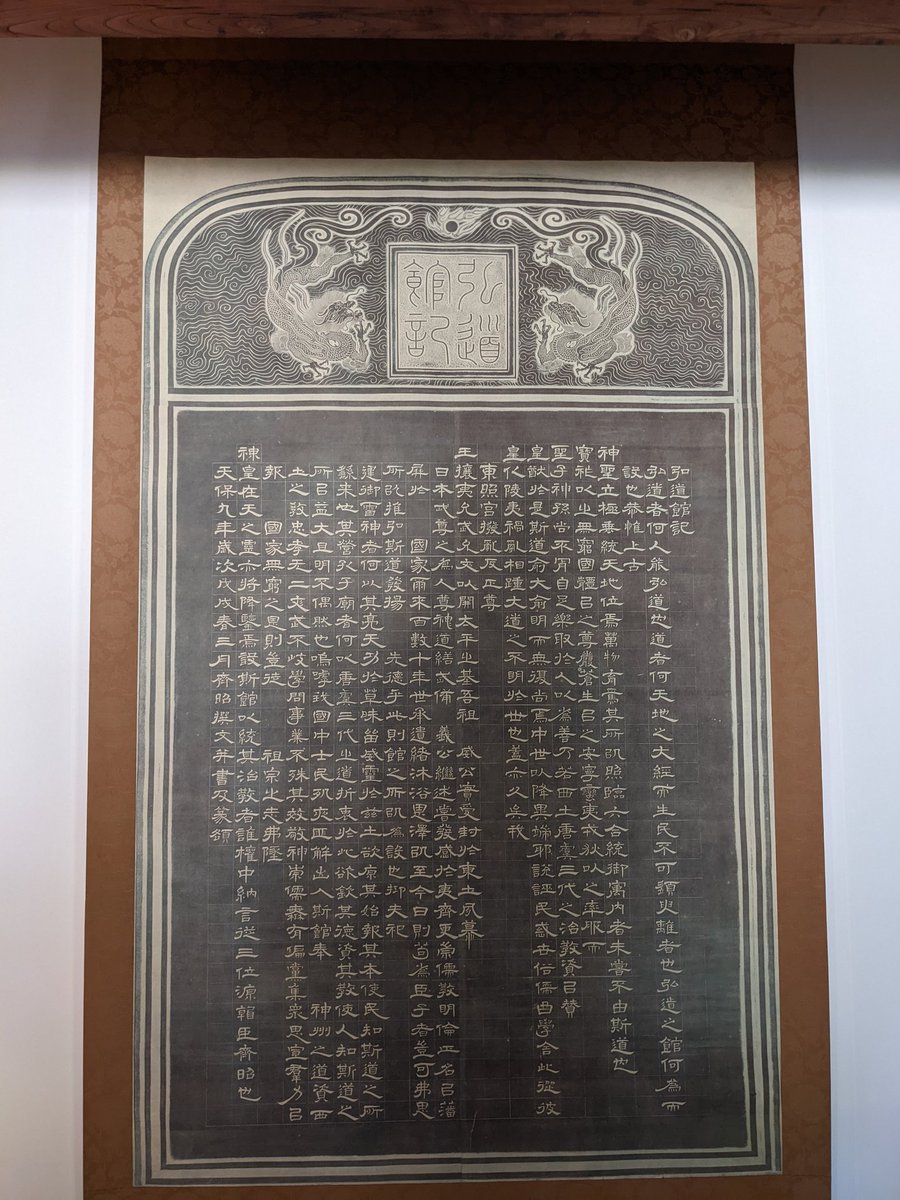 弘道
館記
弘道館記
弘道者何人能弘道也道者何天地之大經而生民不可須臾離者也弘道之館何為而
設也恭惟上古
神聖立極垂統天地位焉萬物育焉其所以照臨六合統御寓內者未嘗不由斯道也
寶祚以之無窮國體以之尊嚴蒼生以之安寧蠻夷戎狄以之率服而
聖子神孫尚不肯自足樂取於人以為善乃若西土唐虞三代之治教資以贊
皇猷於是斯道愈大愈明而無復尚焉中世以降異端邪說誣民惑世俗儒曲學舍此從彼
皇化陵夷禍亂相踵大道之不明於世也蓋亦久矣我
東照宮撥亂反正尊
王攘夷允武允文以開太平之基吾祖 威公實受封於東土夙慕
日本武尊之為人尊神道繕武備 義公繼述嘗發感於夷齊更崇儒教明倫正名以藩
屏於 國家爾來百數十年世承遺緒沐浴恩澤以至今日則苟為臣子者豈可弗思
所以推弘斯道發揚 先德乎此則館之所以為設也抑夫祀
建御雷神者何以其亮天功於草昧留威靈於茲土欲原其始報其本使民知斯道之所
繇來也其營孔子廟者何以唐虞三代之道折衷於此欲欽其德資其教使人知斯道之
所以益大且明不偶然也嗚虖我國中士民夙夜匪解出入斯館奉 神州之道資西
土之教忠孝无二文武不岐學問事業不殊其效敬神崇儒無有偏黨集衆思宣羣力以
報 國家無窮之恩則豈徒 祖宗之志弗墜
神皇在天之靈亦將降鑒焉設斯館以統其治教者誰權中納言從三位源朝臣齊昭也
天保九年歲次戊戌春三月齊昭撰文并書及篆額